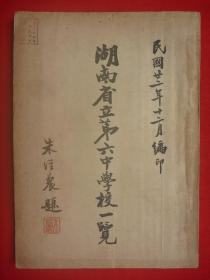 民國廿二年十二月編印
湖南省立第六中學校一覽
朱經農題